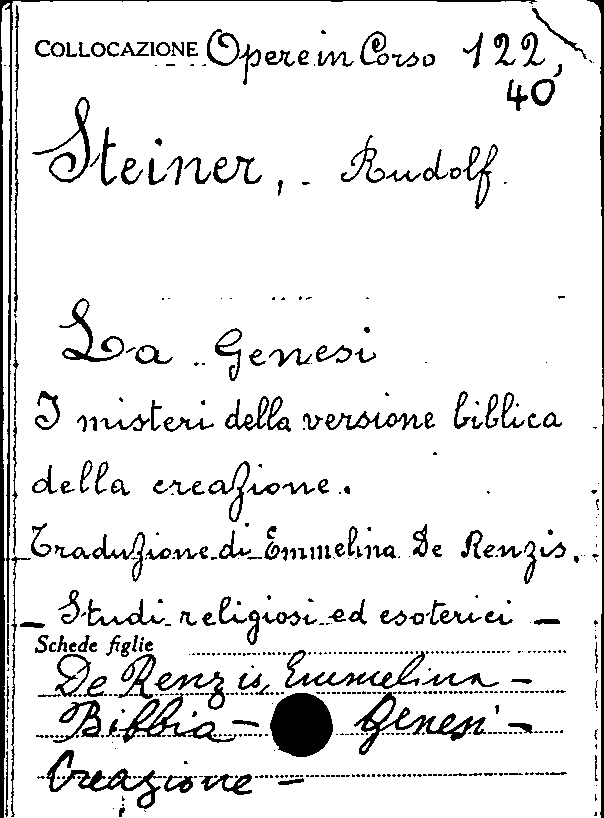 COLLOCAZIONE Opere in Corso 122,
40
Steiner, - Rudolf.
La Genesi
I misteri della versione biblica
della creazione.
Traduzione di Emmelina De Renzis.
- Studi religiosi ed esoterici -
Schede figlie
De Renzis, Emmelina -
Bibbia - Genesi -
Creazione -